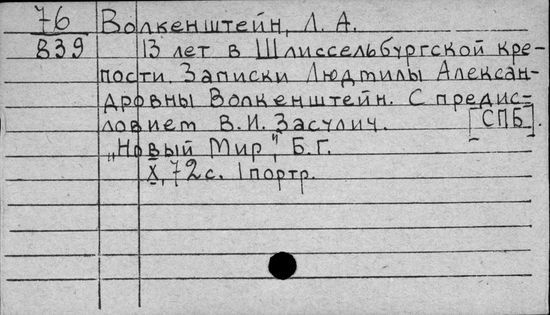 76 Волкенштейн, Л. А.
В39 13 лет в Шлиссельбургской кре-
пости. Записки Людмилы Алексан-
дровны Волкенштейн. С предис-
ловием В.И. Засулич. [СПБ].
„Новый Мир", Б.Г.
X, 72 с. 1 портр.